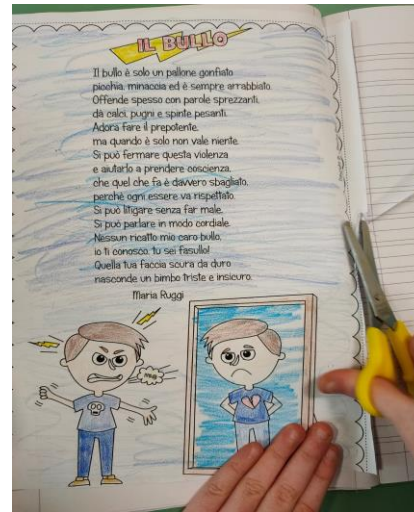 IL BULLO
Il bullo è solo un pallone gonfiato
picchia, minaccia ed è sempre arrabbiato.
Offende spesso con parole sprezzanti,
dà calci, pugni e spinte pesanti.
Adora fare il prepotente,
ma quando è solo non vale niente.
Si può fermare questa violenza
e aiutarlo a prendere coscienza,
che quel che fa è davvero sbagliato,
perché ogni essere va rispettato.
Si può litigare senza far male,
Si può parlare in modo cordiale.
Nessun ricatto mio caro bullo,
io ti conosco, tu sei fasullo!
Quella tua faccia scura da duro
nasconde un bimbo triste e insicuro.
Maria Ruggi